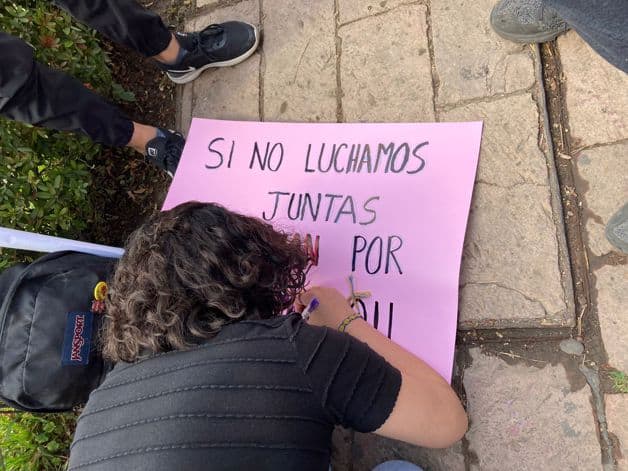 SI NO LUCHAMOS
JUNTAS
POR
JANSPORT